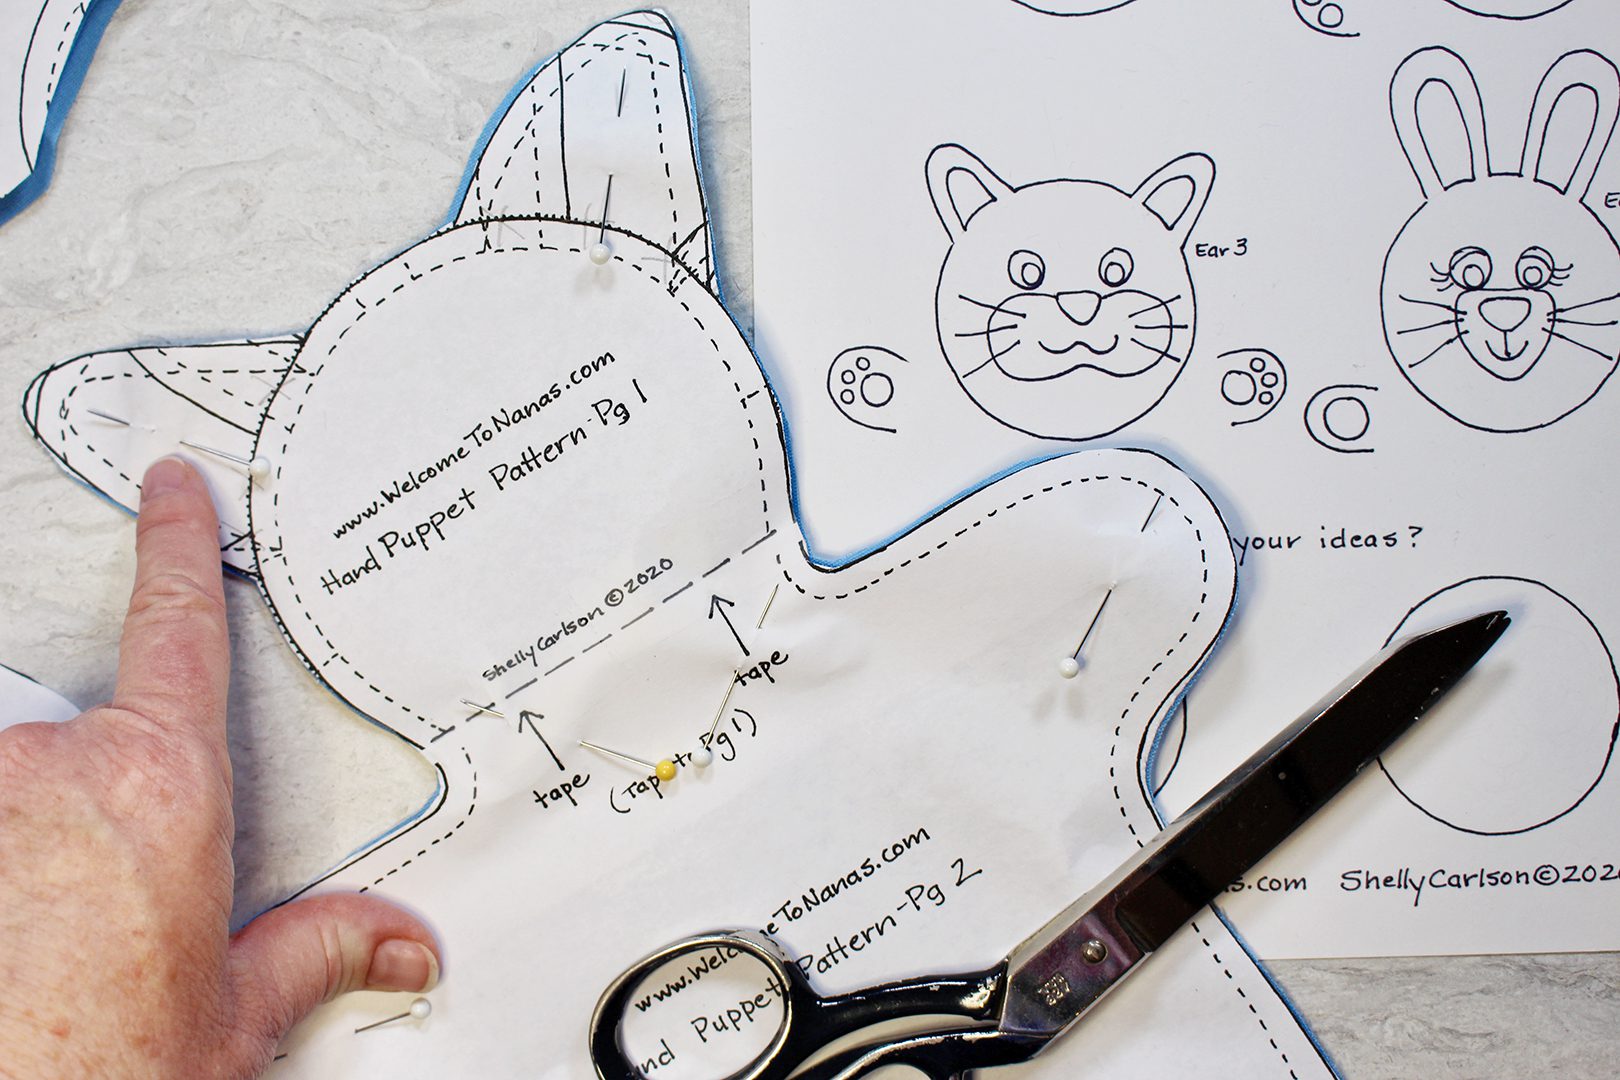 www.WelcomeToNanas.com
Hand Puppet Pattern-Pg 1
Shelly Carlson ©2020
tape
tape
(Tape to Pg 1)
www.WelcomeToNanas.com
Hand Puppet Pattern-Pg 2
Ear 3
your ideas?
s.com Shelly Carlson ©202